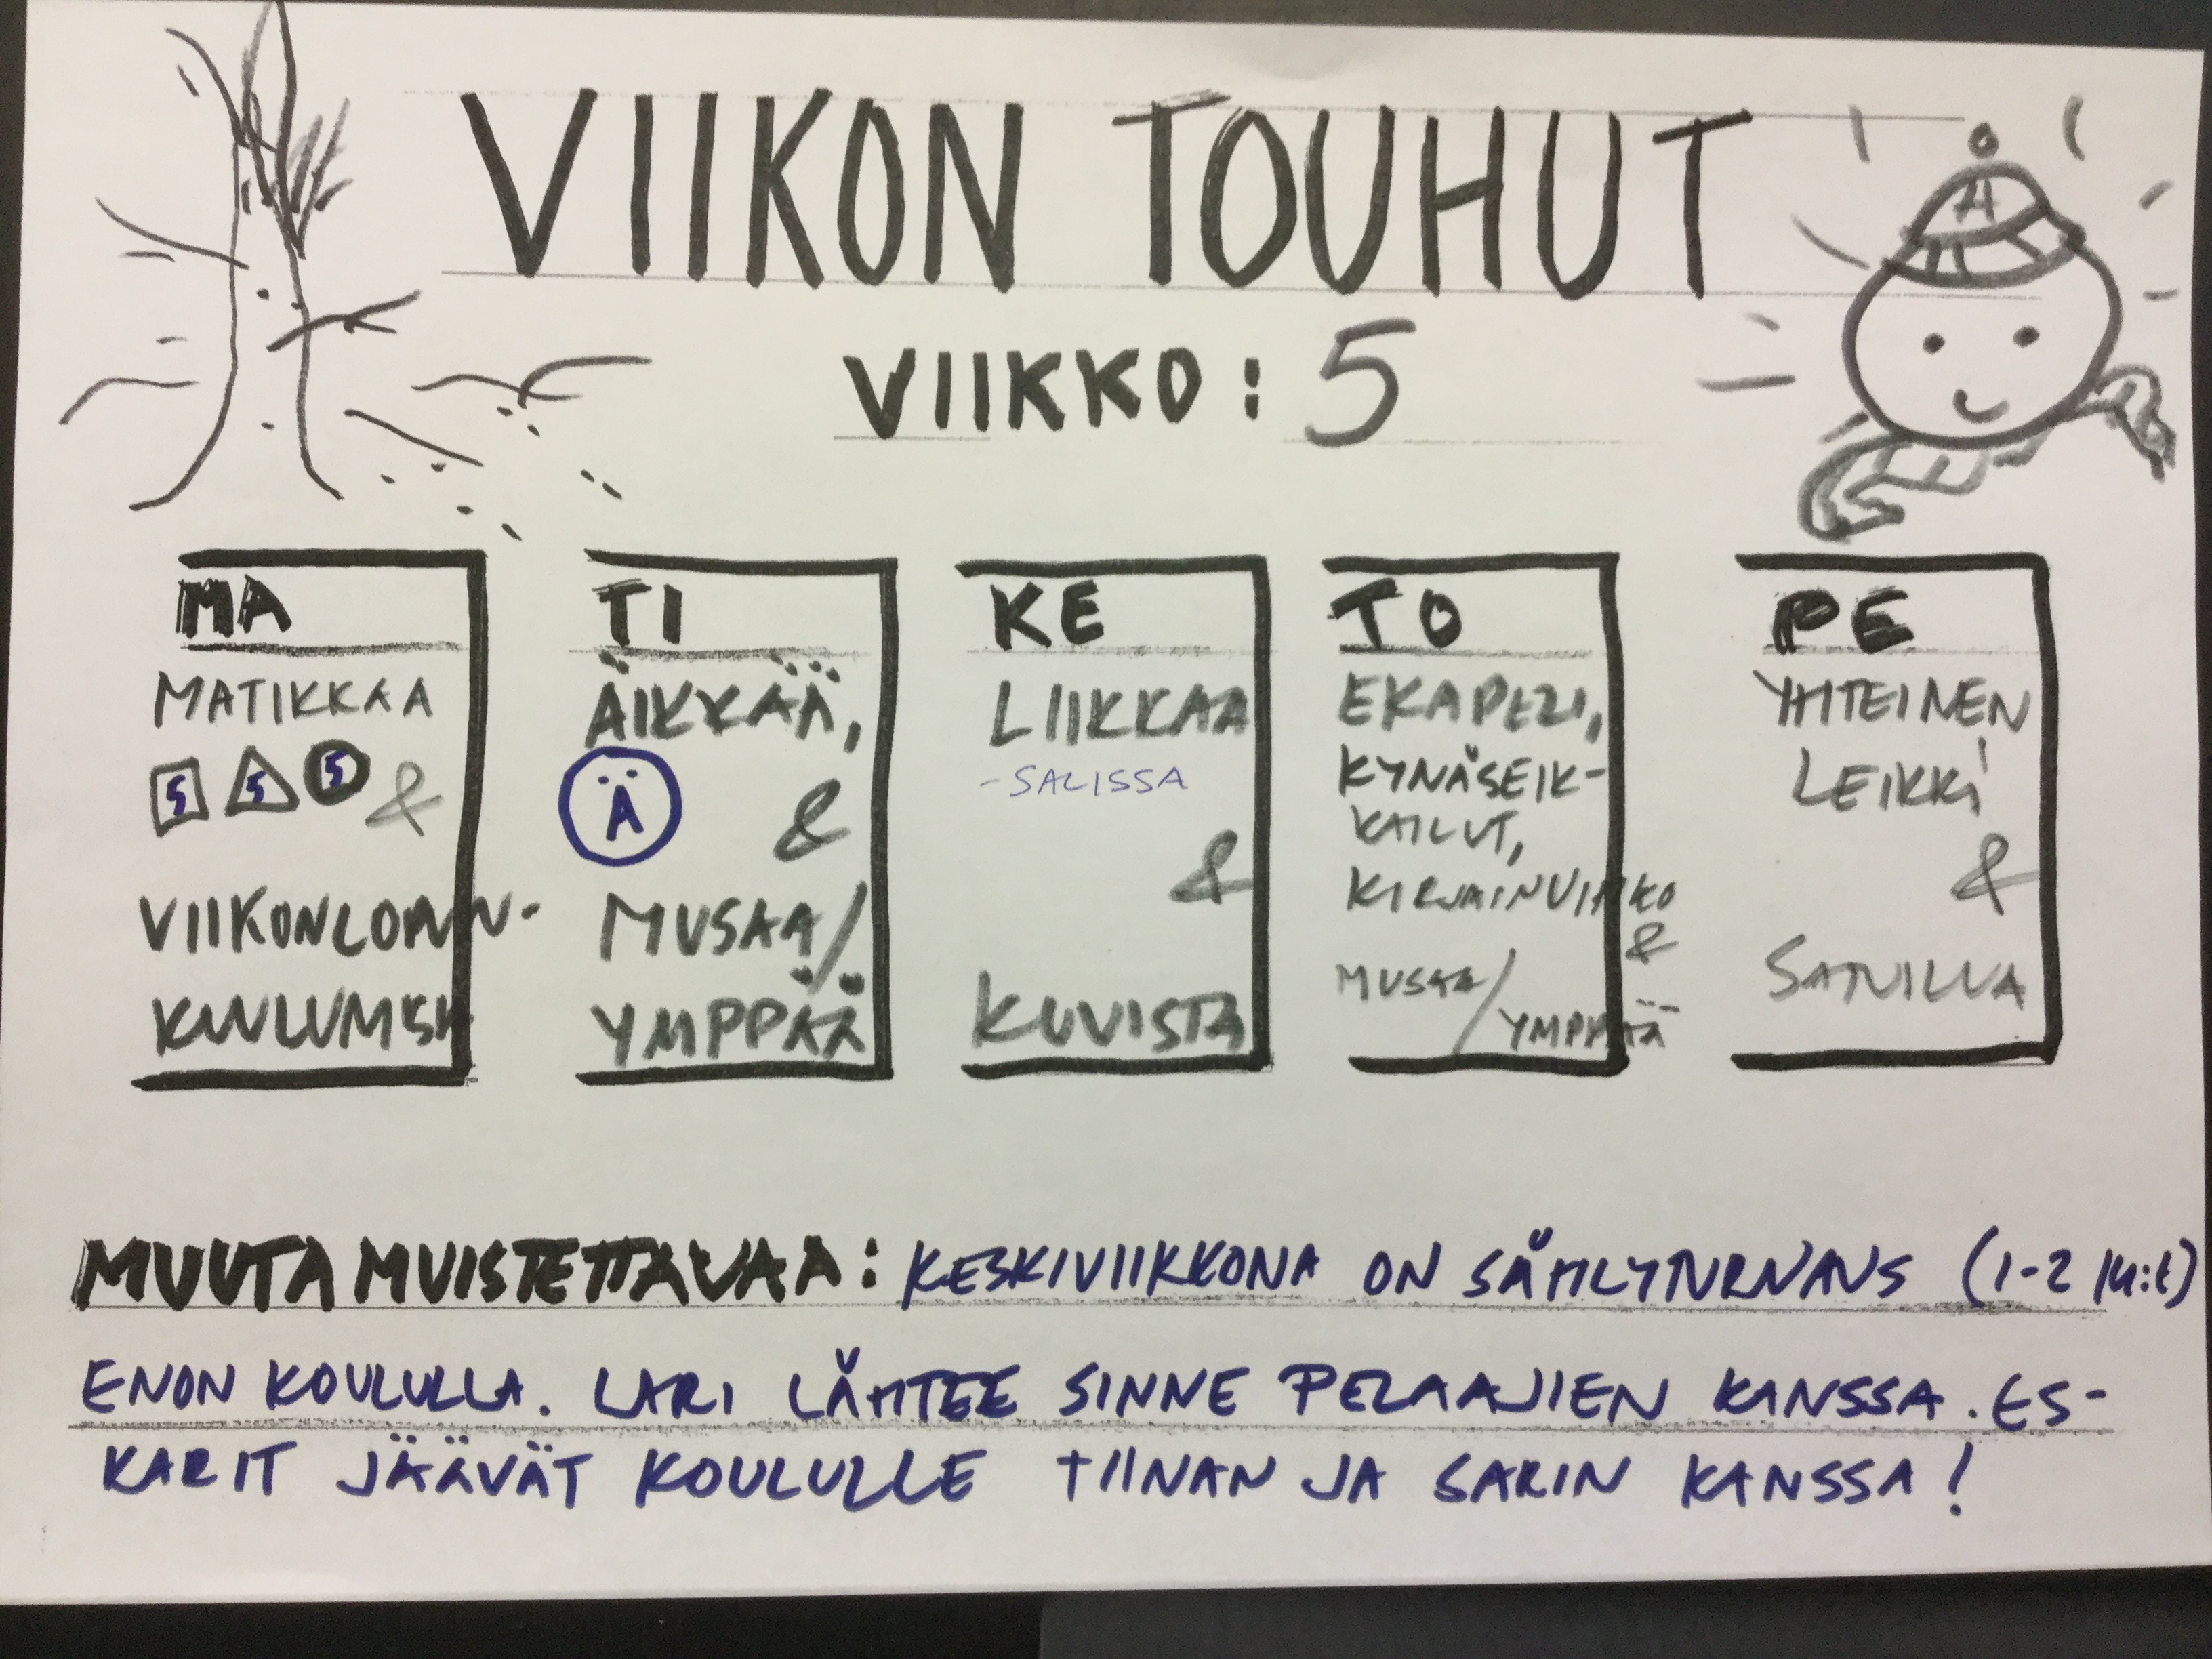 VIIKON TOUHUT
VIIKKO: 5
MA
MATIKKAA
5 5 5 &
VIIKONLOPUN-
KUULUMISIA
TI
ÄIKKÄÄ,
Ä &
MUSAA/
YMPPÄÄ
KE
LIIKKAA
-SALISSA
&
KUVISTA
TO
EKAPELI,
KYNÄSEIK-
KAILUT,
KIRJAINVIHKO
&
MUSAA/
YMPPÄÄ
PE
YHTEINEN
LEIKKI
&
SATUILUA
MUUTA MUISTETTAVAA: KESKIVIIKKONA ON SÄHLYTURNAUS (1-2 lk:t)
ENON KOULULLA. LARI LÄHTEE SINNE PELAAJIEN KANSSA. ES-
KARIT JÄÄVÄT KOULULLE TIINAN JA SARIN KANSSA!